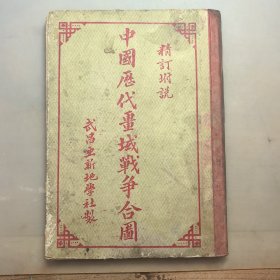 精訂坿說
中國歷代畺域戰爭合圖
武昌亞新地學社製